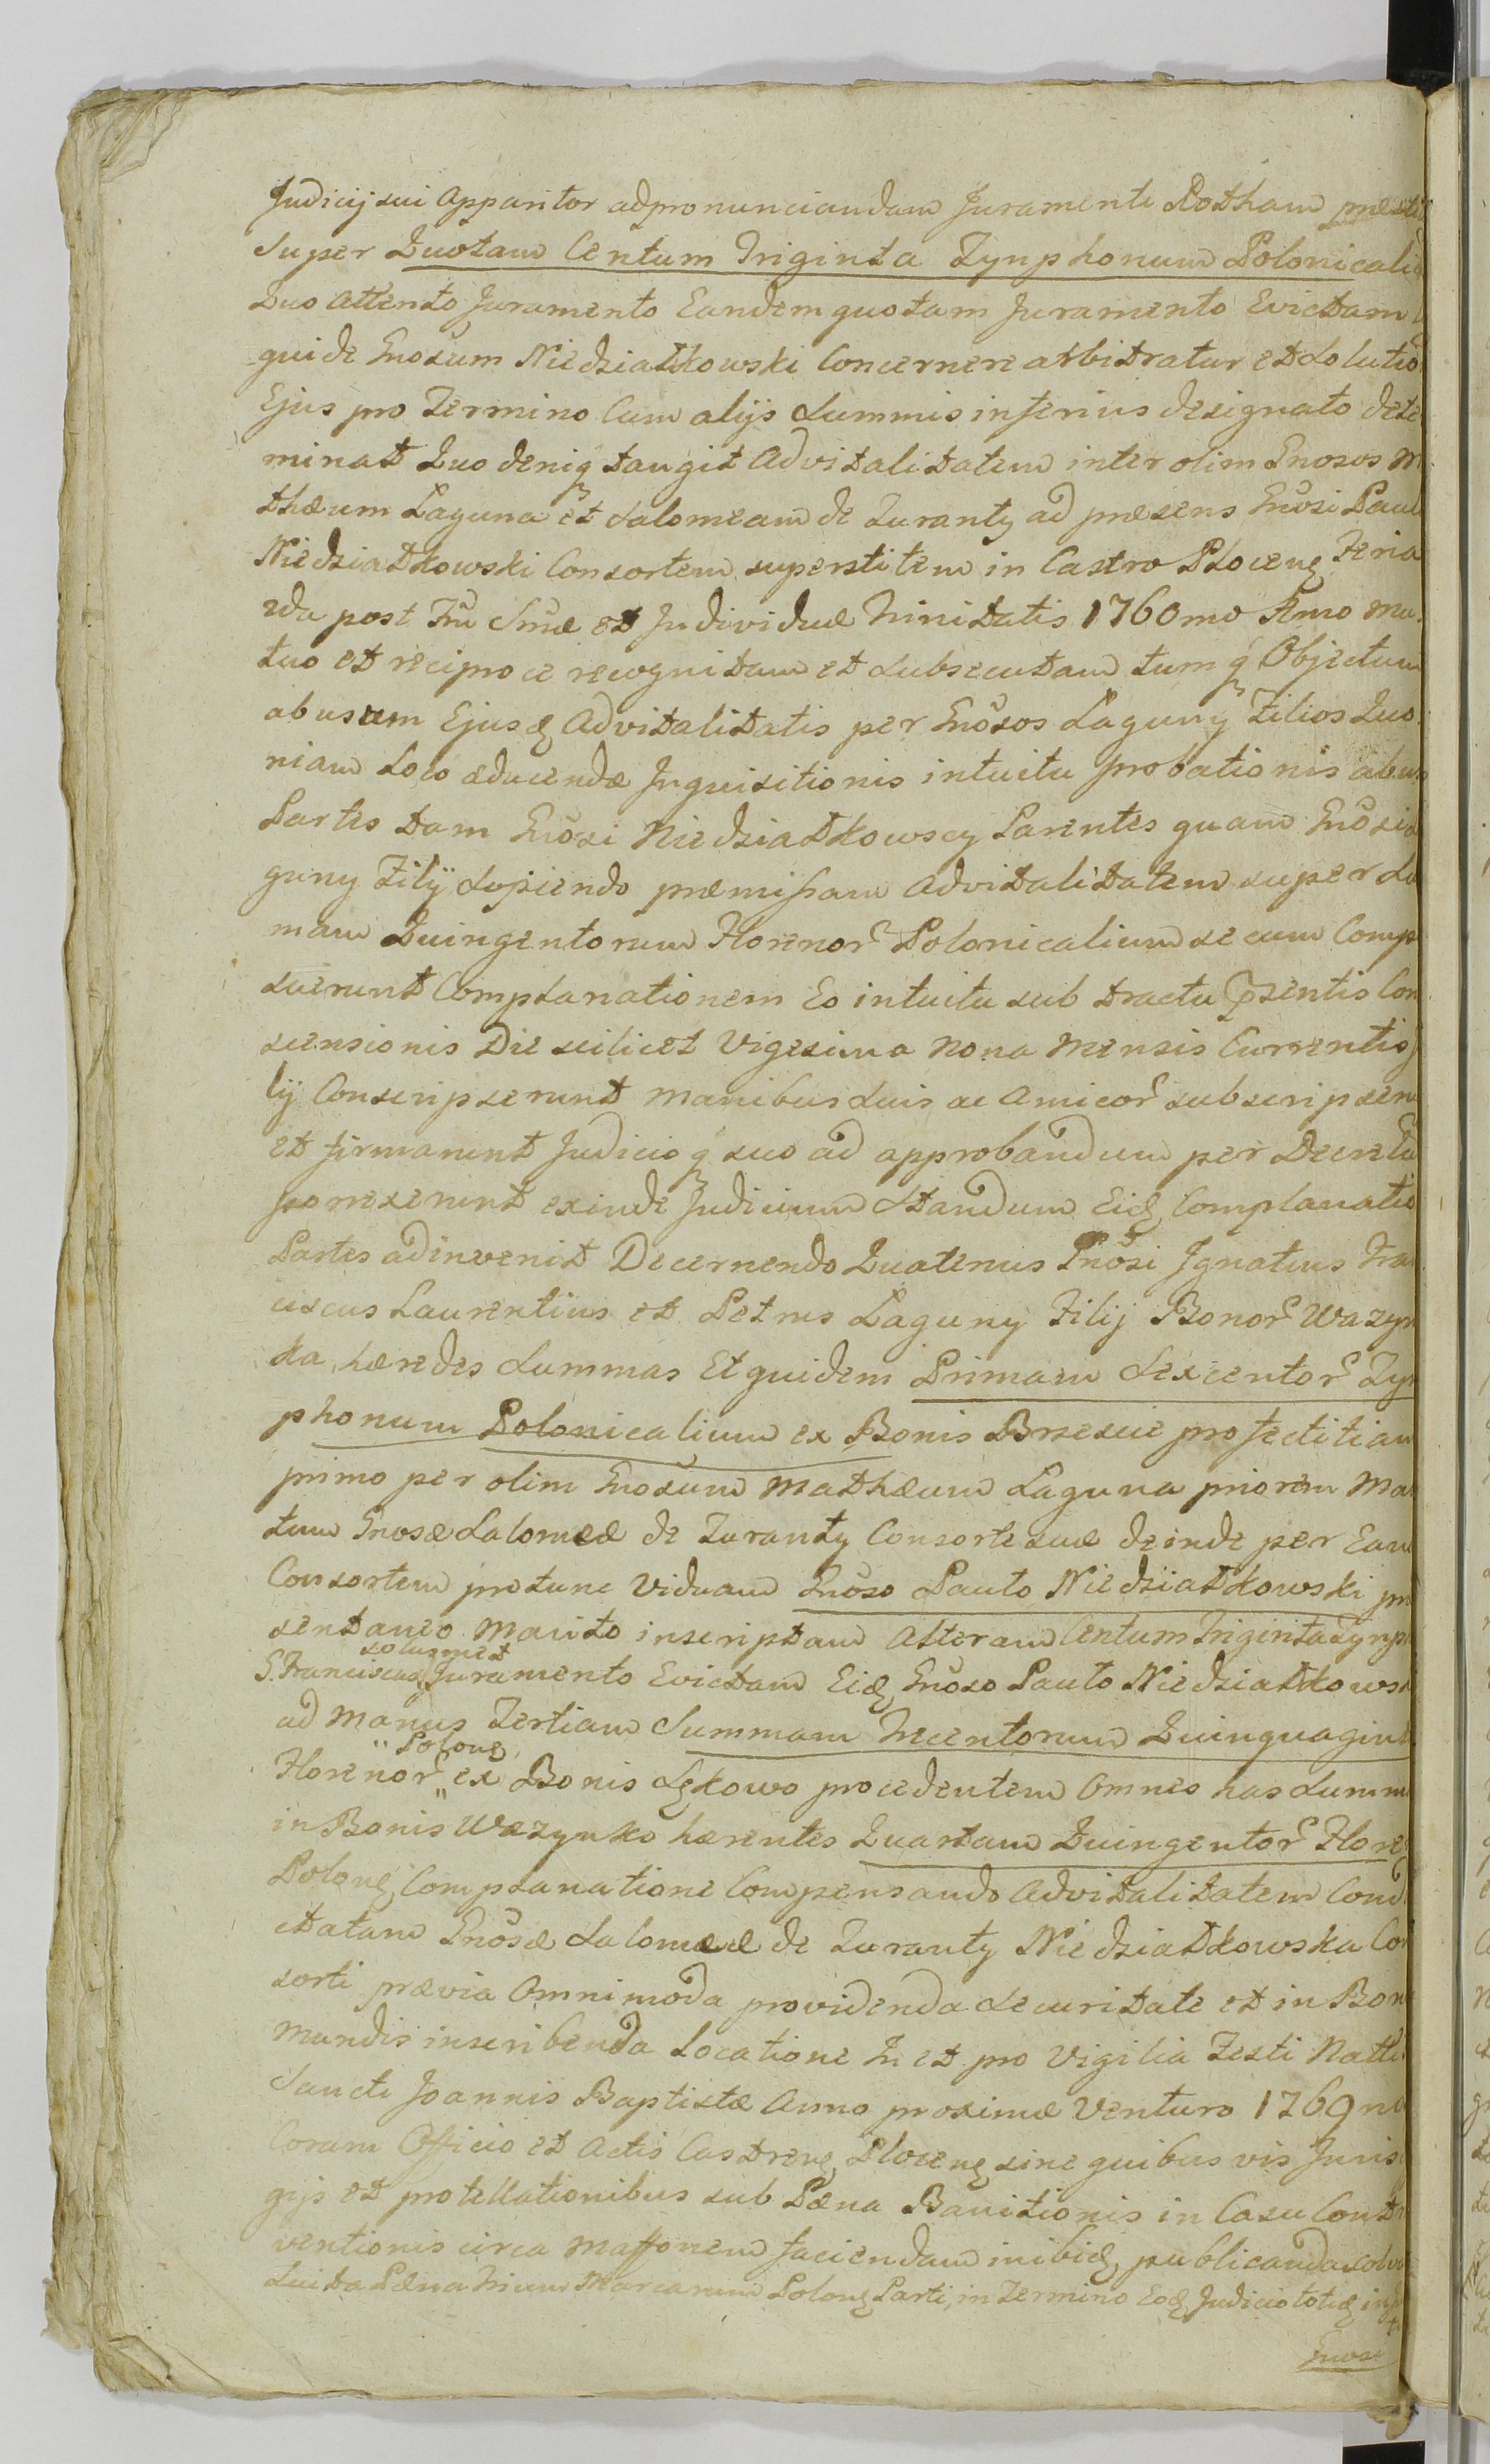 Judicij sui Apparitor ad pronunciandam Juramenti Rotham præsti
super Quotam Centum Triginta Tynphonum Polonicali
Quo Attento Juramento Eandem quotam Juramento Evictam
quide Gnosum Niedziałkowski Concernere arbitratur et solutio
Ejus pro Termino Cum alijs summis inferius designato dete
minat Quo deniq tangit Advitalitatem inter olim Gnosos M
thæum Laguna et Salomeam de Zuranty ad præsens Gnosi Paul
Niedziałkowski Consortem superstitem in Castro Plocen Feria
2da post Fm Smæ et Individuæ Trinitatis 1760mo Anno mu
tuo et reciproce recognitam et subsecutam tum q Objectum
abusum Ejusd Advitalitatis per Gnosos Laguny Filios Quo
niam Loco educendæ Inquisitionis intuitu probationis abus
Partes tam Gnosi Niedziałkowscy Parentes quam Gnosi La
guny Filij sopiendo præmissam Advitalitatem super Su
mam Quingentorum Florenor Polonicalium secum Comp
suerunt Complanationem Eo intuitu sub tractu psentis Con
scensionis Die scilicet Vigesima Nona Mensis Currentis J
lij Conscripserunt manibus suis ac Amicor subscripserun
et firmarunt Judicio q suo ad approbandum per Decretu
porrexerunt exinde Judicium standum Eid Complanatio
Partes adinvenit Decernendo Quatenus Gnosi Ignatius Fra
ciscus Laurentius et Petrus Laguny Filij Bonor Wazyn
ka hæredes Summas Et quidem Primam Sexcentor Ty
phonum Polonicalium ex Bonis Brzescie profectitiam
primo per olim Gnosum Mathæum Laguna priorem Ma
tum Gnosæ Salomeæ de Zuranty Consorti suæ deinde per Eam
Consortem pro tunc Viduam Gnoso Paulo Niedziałkowski pr
sentaneo Marito inscriptam Alteram Centum Triginta Tynp
G. Franciscus solusmet Juramento Evictam Eid Gnoso Paulo Niedziałkowsk
ad Manus Tertiam Summam Trecentorum Quinquagint
Florenor Polon ex Bonis Lękowo procedentem Omnes has summ
in Bonis Wazynko hærentes Quartam Quingentor Flore
Polon Complanatione Compensando Advitalitatem Cond
ctatam Gnosæ Salomeæ de Zuranty Niedziałkowska Con
sorti prævia Omnimoda providenda Securitate et in Bon
mundis inscribenda Locatione In et pro Vigilia Festi Natti
Sancti Joannis Baptistæ Anno proxime Venturo 1769no
Coram Officio et Actis Castren Plocen sine quibusvis Juris
gijs et protellationibus sub Pæna Banitionis in Casu Contr
ventionis circa Maffonem faciendam inibid publicanda solv
Luita Pæna Trium Marcarum Polon Parti, in Termino Eod Judicio totid
Gnosi